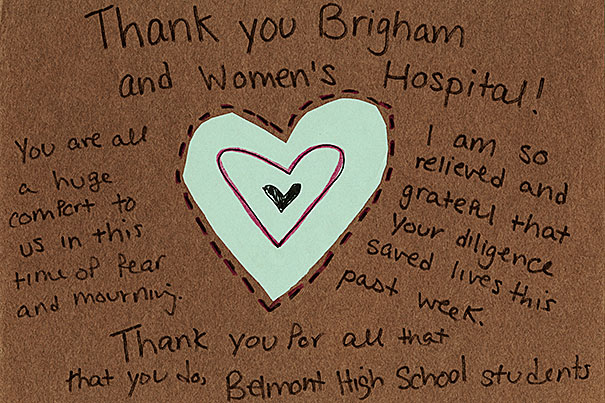 Thank you Brigham
and Women's Hospital!
You are all
a huge
comfort to
us in this
time of fear
and mourning.
I am so
relieved and
grateful that
your diligence
saved lives this
past week.
Thank you for all that
that you do, Belmont High School students